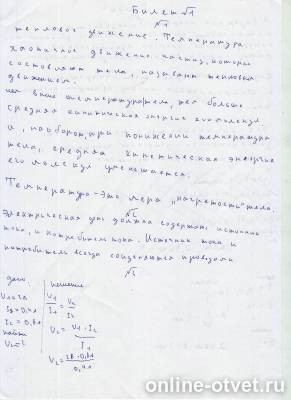 Билет №1
№1
тепловое движение. Температура
хаотичное движение частиц, которые
составляют тела, называют тепловым
движением.
чем выше температура тела, тем больше
средняя кинетическая энергия его молекул
и, наоборот, при понижении температуры
тела, средняя кинетическая энергия
его молекул уменьшается.
Температура - это мера "нагретости" тела.
№2
Электрическая цепь должна содержать источник
тока, и потребитель тока. Источник тока и
потребитель всегда соединяются проводами
дано: решение
U₁=2В U₁/I₁ = U₂/I₂
I₁=0,4А
I₂=0,8А U₂ = U₁·I₂/I₁
найти
U₂-? U₂ = 2В·0,8А/0,4А
online-otvet.ru